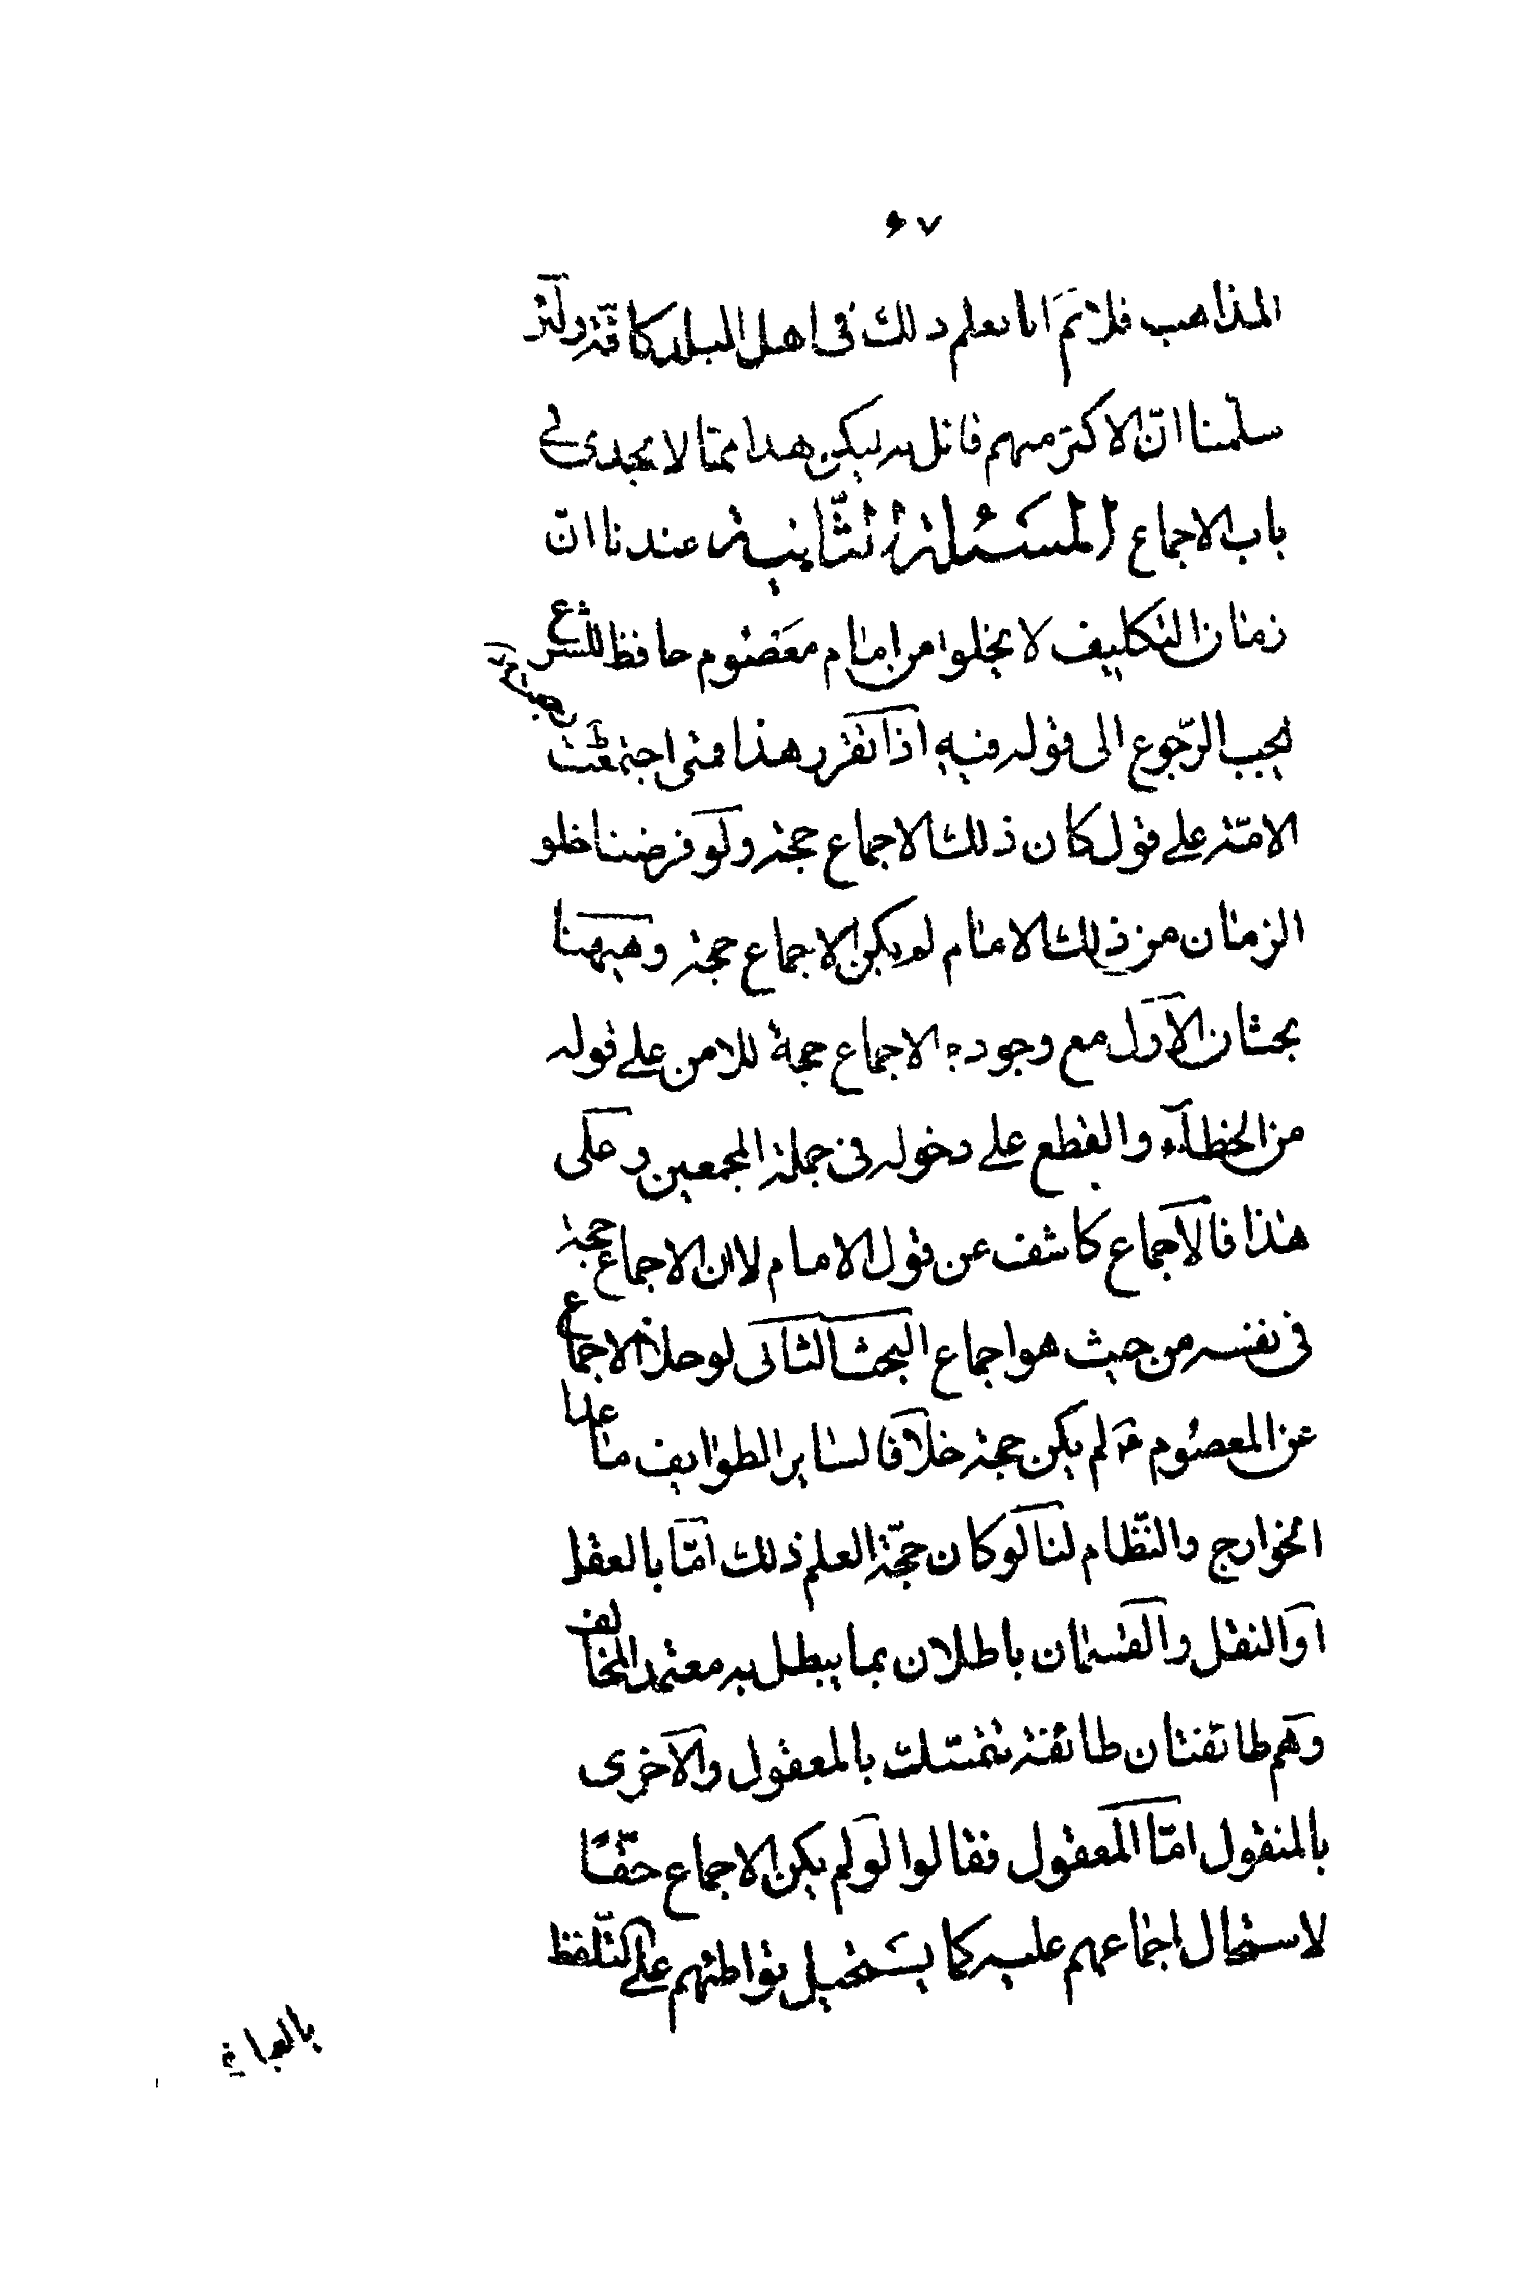 ۶۷
المذاهب فلا ثم انا نعلم ذلك فى اهل البلد كافّة ولئن
سلّمنا انّ الاكثر منهم قائل به ليكن هذا ممّا لا يجدى فى
باب الاجماع المسئلة الثّانية عندنا انّ
زمان التكليف لا يخلوا من امام معصوم حافظ للشرع
يجب الرّجوع الى قوله فيه اذا تقرّر هذا فمتى اجتمعت
الامّة على قول كان ذلك الاجماع حجة ولو فرضنا خلو
الزمان من ذلك الامام لم يكن الاجماع حجة وهيهنا
بحثان الاول مع وجوده الاجماع حجة للامن على قوله
من الخطآء والقطع على دخوله فى جملة المجمعين وعلى
هذا فالاجماع كاشف عن قول الامام لا ان الاجماع حجة
فى نفسه من حيث هو اجماع البحث الثانى لو خلا الاجماع
عن المعصوم ع لم يكن حجة خلافا لساير الطوايف ما عدا
الخوارج والنّظام لنا لو كان حجّة العلم ذلك امّا بالعقل
او النقل والقسمان باطلان بما يبطل به معتمد المخالف
وهم طائفتان طائفة تمسّكت بالمعقول والاخرى
بالمنقول امّا المعقول فقالوا لو لم يكن الاجماع حقّاً
لاستحال اجماعهم عليه كما يستحيل تواطئهم على التّلفظ